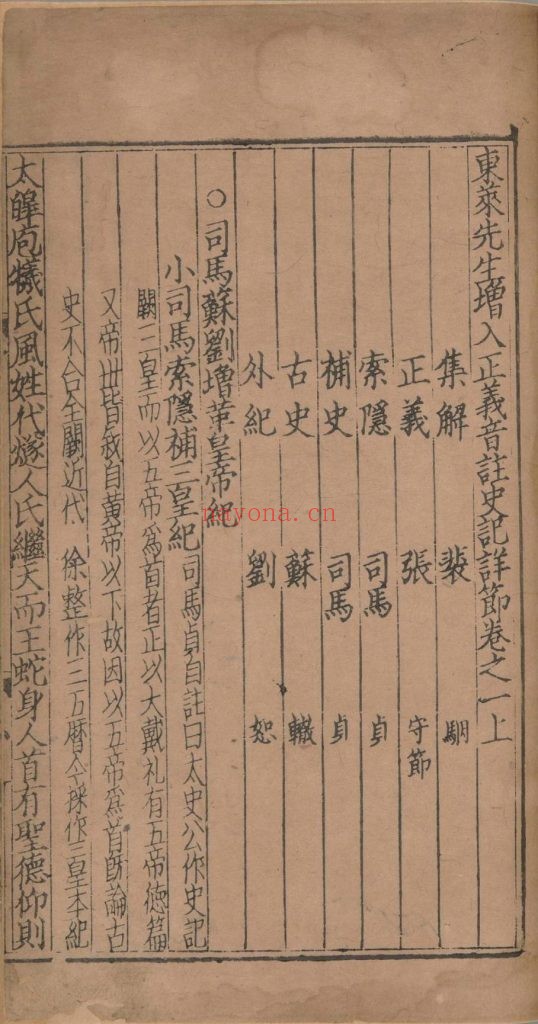 東萊先生增入正義音註史記詳節卷之一上
集解 裴 駰
正義 張 守節
索隱 司馬 貞
補史 司馬 貞
古史 蘇 轍
外紀 劉 恕
○司馬蘇劉增革皇帝紀
小司馬索隱補三皇紀 司馬貞自註曰太史公作史記
闕三皇而以五帝爲首者正以大戴礼有五帝德篇
又帝丗皆叙自黃帝以下故因以五帝爲首旣論古
史不合全闕近代 徐整作三五曆今採作三皇本紀
太皥庖犧氏風姓代燧人氏繼天而王蛇身人首有聖德仰則
nayona.cn